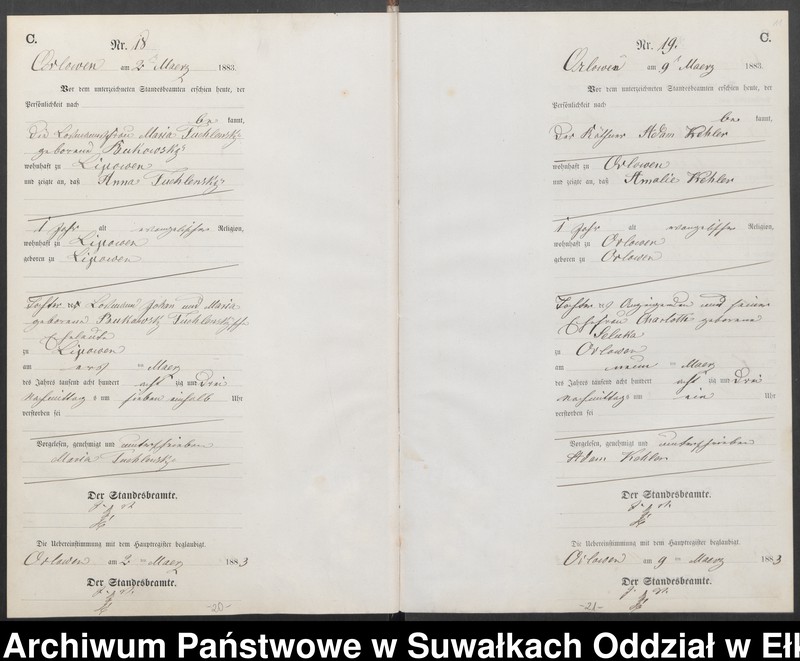 C.
Nr. 18
Orlowen am 2 Maerz 1883.
Vor dem unterzeichneten Standesbeamten erschien heute, der
Persönlichkeit nach
be kannt,
die Losmannsfrau Maria Tuchlensky
geborene Bukowsky
wohnhaft zu Lipowen
und zeigte an, daß Anna Tuchlensky
1 Jahr alt evangelischer Religion,
wohnhaft zu Lipowen
geboren zu Lipowen
Tochter des Losmann Johan und Maria
geborene Bukowsky Tuchlensky
Eheleute
zu Lipowen
am ten Maerz
des Jahres tausend acht hundert acht zig und drei
Nachmittags um sieben einhalb Uhr
verstorben sei
Vorgelesen, genehmigt und unterschrieben
Maria Tuchlensky
Der Standesbeamte.
Die Uebereinstimmung mit dem Hauptregister beglaubigt.
Orlowen am 2 ten Maerz 1883
Der Standesbeamte.
-20-
C.
Nr. 19.
Orlowen am 9 Maerz 1883.
Vor dem unterzeichneten Standesbeamten erschien heute, der
Persönlichkeit nach
be kannt,
der Käthner Adam Kehler
wohnhaft zu Orlowen
und zeigte an, daß Amalie Kehler
1 Jahr alt evangelischer Religion,
wohnhaft zu Orlowen
geboren zu Orlowen
Tochter des Anzeigenden und seiner
Ehefrau Charlotte geborene
zu Orlowen
am neun ten Maerz
des Jahres tausend acht hundert acht zig und drei
Nachmittags um ein Uhr
verstorben sei
Vorgelesen, genehmigt und unterschrieben
Adam Kehler
Der Standesbeamte.
Die Uebereinstimmung mit dem Hauptregister beglaubigt.
Orlowen am 9 ten Maerz 1883
Der Standesbeamte.
-21-
Archiwum Państwowe w Suwałkach Oddział w Ełk